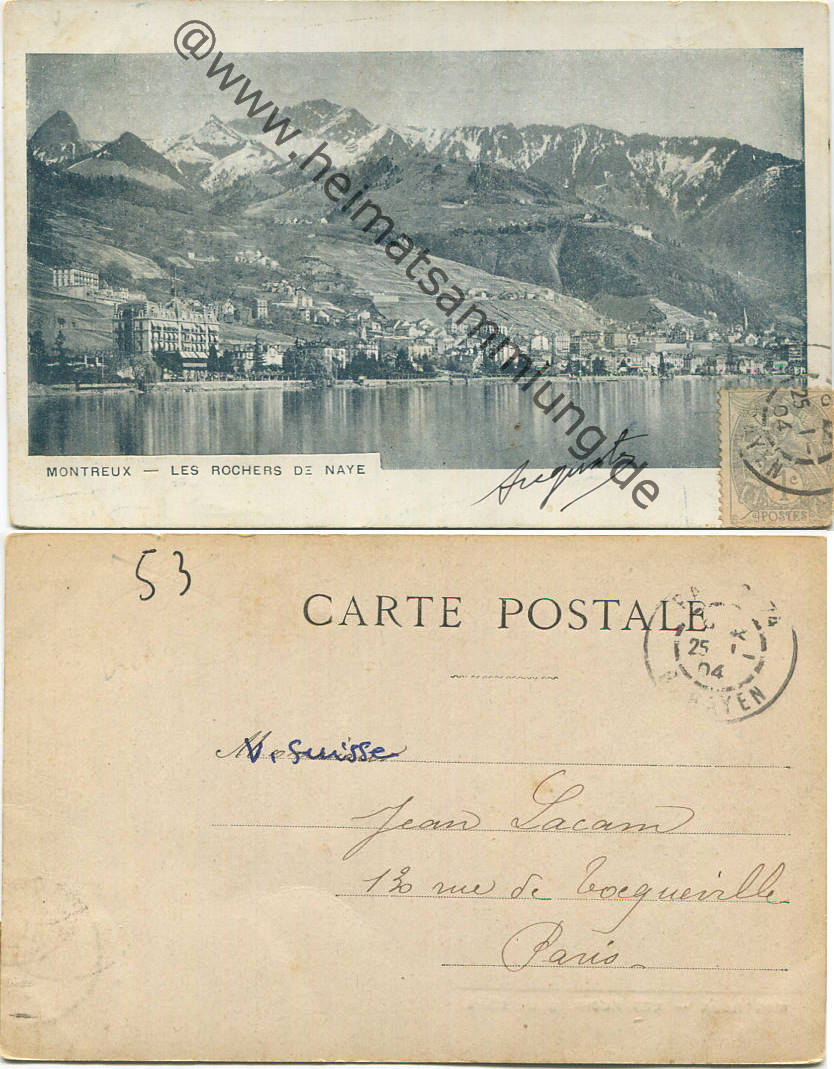 @www.heimatsammlung.de
MONTREUX — LES ROCHERS DE NAYE
25
04
AYEN
1c
POSTES
53
CARTE POSTALE
25 -1
04
BAYEN
V. Suisse
Jean Lacam
130 rue de Tocqueville
Paris